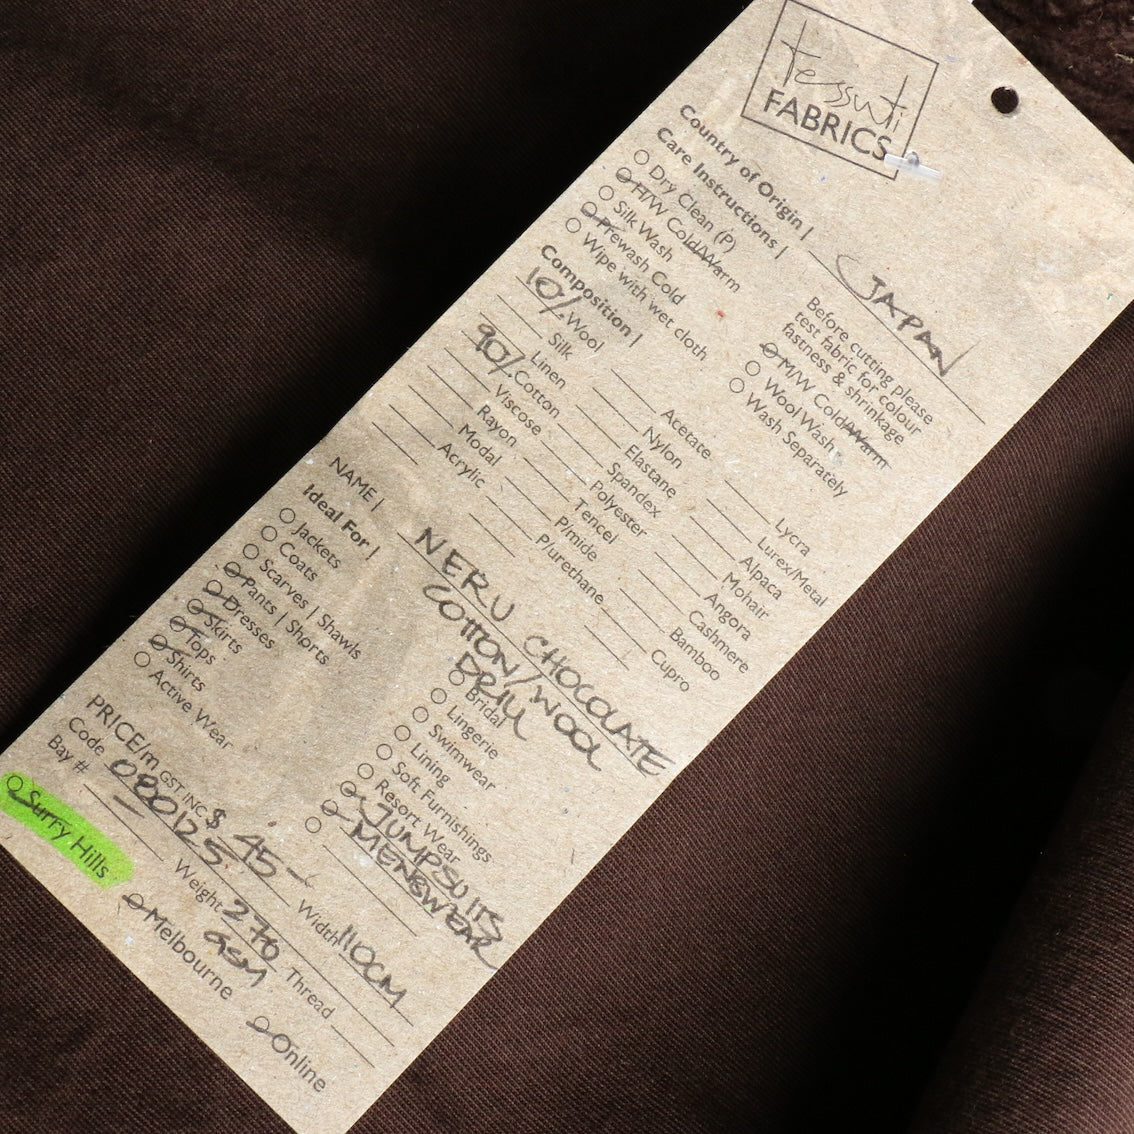 tessuti
FABRICS
Country of Origin | JAPAN
Care Instructions |
Dry Clean (P)
H/W Cold/Warm
Silk Wash
Prewash Cold
Wipe with wet cloth
Before cutting please
test fabric for colour
fastness & shrinkage
M/W Cold/Warm
Wool Wash
Wash Separately
Composition |
10% Wool
Silk
Linen
90% Cotton
Viscose
Rayon
Modal
Acrylic
Acetate
Nylon
Elastane
Spandex
Polyester
Tencel
P/mide
P/urethane
Lycra
Lurex/Metal
Alpaca
Mohair
Angora
Cashmere
Bamboo
Cupro
NAME | NERU CHOCOLATE
COTTON/WOOL
DRILL
Ideal For |
Jackets
Coats
Scarves | Shawls
Pants | Shorts
Dresses
Skirts
Tops
Shirts
Active Wear
Bridal
Lingerie
Swimwear
Lining
Soft Furnishings
Resort Wear
JUMPSUITS
MENSWEAR
PRICE/m GST INC $ 45-
Code 080125
Width 110CM
Bay #
Weight 270
GSM
Thread
Surry Hills
Melbourne
Online